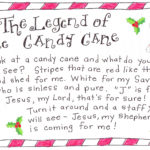 The Legend of
the Candy Cane
Look at a candy cane and what do you
see? Stripes that are red like the
blood shed for me. White for my Savior
who is sinless and pure. "J" is for
Jesus, my Lord, that's for sure!
Turn it around and a staff you
will see - Jesus, my Shepherd
is coming for me!